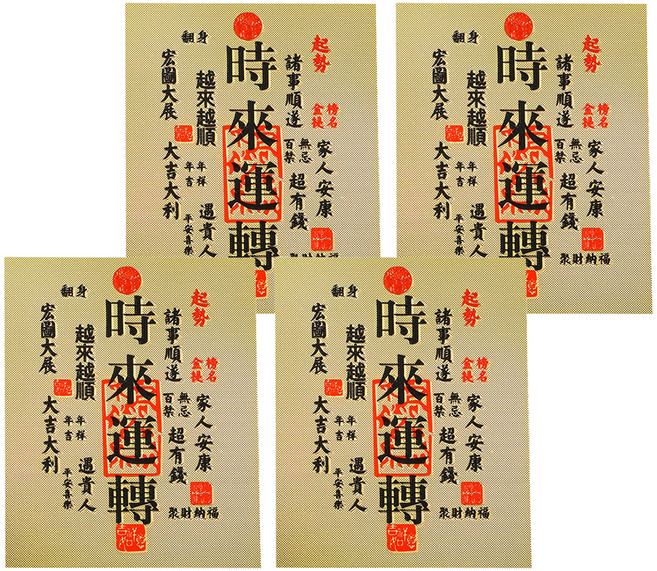 起勢
金榜
提名
家人安康
聚財納福
諸事順遂
百無
禁忌
超有錢
時來運轉
翻身
越來越順
年年
吉祥
遇貴人
平安喜樂
宏圖大展
大吉大利
起勢
金榜
提名
家人安康
聚財納福
諸事順遂
百無
禁忌
超有錢
時來運轉
翻身
越來越順
年年
吉祥
遇貴人
平安喜樂
宏圖大展
大吉大利
起勢
金榜
提名
家人安康
聚財納福
諸事順遂
百無
禁忌
超有錢
時來運轉
翻身
越來越順
年年
吉祥
遇貴人
平安喜樂
宏圖大展
大吉大利
起勢
金榜
提名
家人安康
聚財納福
諸事順遂
百無
禁忌
超有錢
時來運轉
翻身
越來越順
年年
吉祥
遇貴人
平安喜樂
宏圖大展
大吉大利